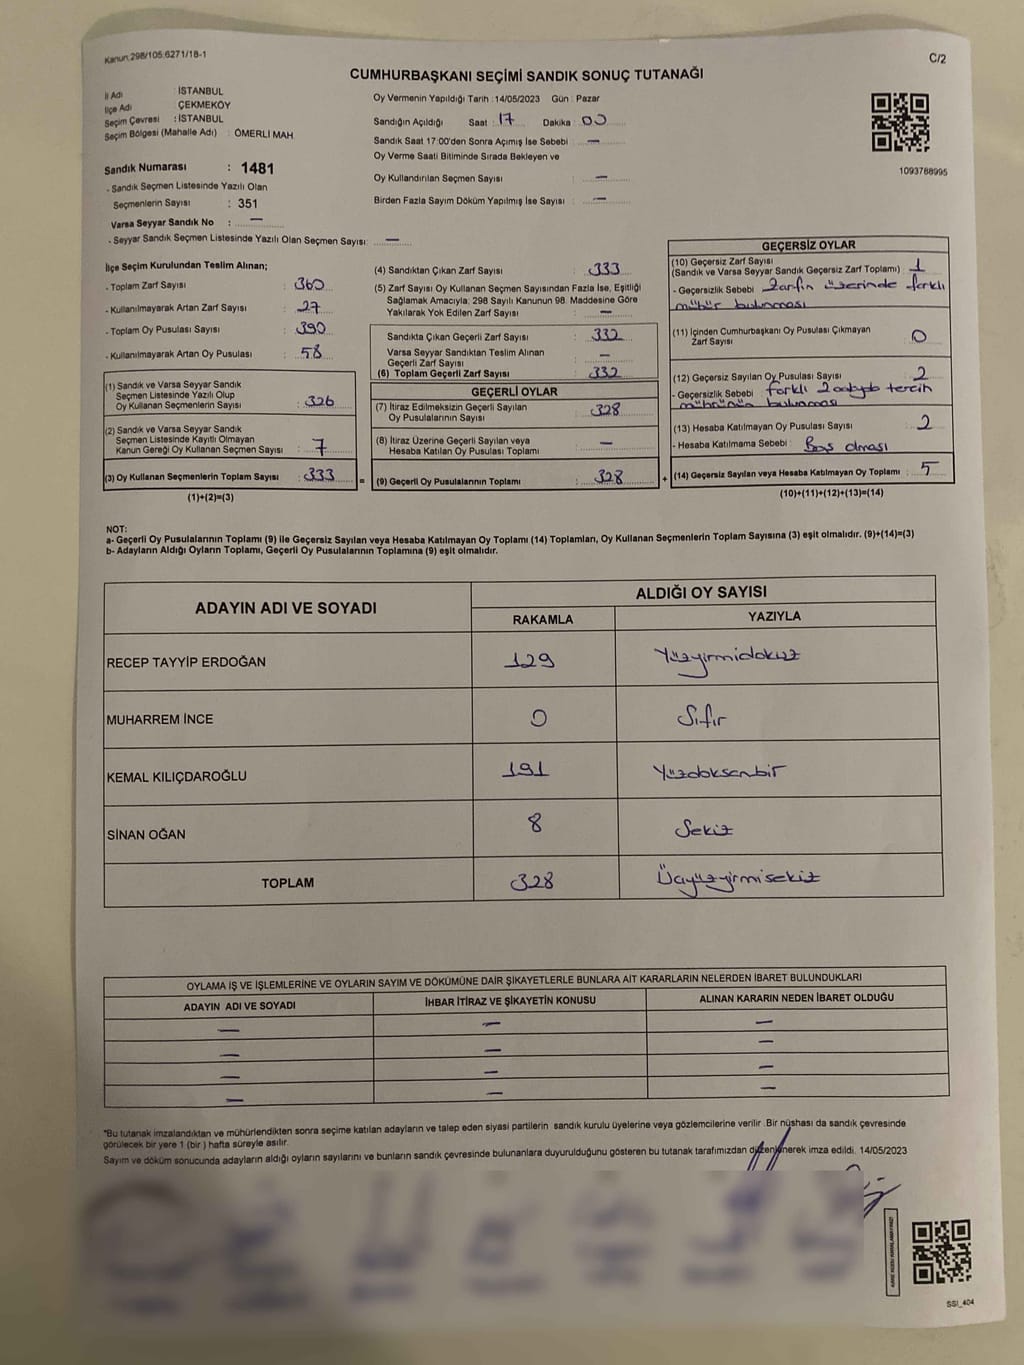 Kanun:298/105:6271/18-1
C/2
CUMHURBAŞKANI SEÇİMİ SANDIK SONUÇ TUTANAĞI
İl Adı : İSTANBUL
İlçe Adı : ÇEKMEKÖY
Seçim Çevresi : İSTANBUL
Seçim Bölgesi (Mahalle Adı) : ÖMERLİ MAH
Oy Vermenin Yapıldığı Tarih :14/05/2023 Gün : Pazar
Sandığın Açıldığı Saat : 17 Dakika : 00
Sandık Saat 17:00'den Sonra Açımış İse Sebebi : —
Oy Verme Saati Bitiminde Sırada Bekleyen ve
Oy Kullandırılan Seçmen Sayısı : —
Birden Fazla Sayım Döküm Yapılmış İse Sayısı : —
1093788995
Sandık Numarası : 1481
- Sandık Seçmen Listesinde Yazılı Olan
Seçmenlerin Sayısı : 351
Varsa Seyyar Sandık No : —
- Seyyar Sandık Seçmen Listesinde Yazılı Olan Seçmen Sayısı: —
İlçe Seçim Kurulundan Teslim Alınan;
- Toplam Zarf Sayısı : 360
- Kullanılmayarak Artan Zarf Sayısı : 27
- Toplam Oy Pusulası Sayısı : 390
- Kullanılmayarak Artan Oy Pusulası : 58
(1) Sandık ve Varsa Seyyar Sandık
Seçmen Listesinde Yazılı Olup
Oy Kullanan Seçmenlerin Sayısı : 326
(2) Sandık ve Varsa Seyyar Sandık
Seçmen Listesinde Kayıtlı Olmayan
Kanun Gereği Oy Kullanan Seçmen Sayısı : 7
(3) Oy Kullanan Seçmenlerin Toplam Sayısı : 333
(1)+(2)=(3)
(4) Sandıktan Çıkan Zarf Sayısı : 333
(5) Zarf Sayısı Oy Kullanan Seçmen Sayısından Fazla İse, Eşitliği
Sağlamak Amacıyla; 298 Sayılı Kanunun 98. Maddesine Göre
Yakılarak Yok Edilen Zarf Sayısı : —
Sandıkta Çıkan Geçerli Zarf Sayısı : 332
Varsa Seyyar Sandıktan Teslim Alınan
Geçerli Zarf Sayısı : —
(6) Toplam Geçerli Zarf Sayısı : 332
GEÇERLİ OYLAR
(7) İtiraz Edilmeksizin Geçerli Sayılan
Oy Pusulalarının Sayısı : 328
(8) İtiraz Üzerine Geçerli Sayılan veya
Hesaba Katılan Oy Pusulası Toplamı : —
= (9) Geçerli Oy Pusulalarının Toplamı : 328 +
GEÇERSİZ OYLAR
(10) Geçersiz Zarf Sayısı
(Sandık ve Varsa Seyyar Sandık Geçersiz Zarf Toplamı) : 1
- Geçersizlik Sebebi : Zarfın üzerinde farklı
mühür bulunması
(11) İçinden Cumhurbaşkanı Oy Pusulası Çıkmayan
Zarf Sayısı : 0
(12) Geçersiz Sayılan Oy Pusulası Sayısı : 2
- Geçersizlik Sebebi : farklı 2 adayda tercih
mührünün bulunması
(13) Hesaba Katılmayan Oy Pusulası Sayısı : 2
- Hesaba Katılmama Sebebi : Boş olması
(14) Geçersiz Sayılan veya Hesaba Katılmayan Oy Toplamı : 5
(10)+(11)+(12)+(13)=(14)
NOT:
a- Geçerli Oy Pusulalarının Toplamı (9) ile Geçersiz Sayılan veya Hesaba Katılmayan Oy Toplamı (14) Toplamları, Oy Kullanan Seçmenlerin Toplam Sayısına (3) eşit olmalıdır. (9)+(14)=(3)
b- Adayların Aldığı Oyların Toplamı, Geçerli Oy Pusulalarının Toplamına (9) eşit olmalıdır.
ADAYIN ADI VE SOYADI ALDIĞI OY SAYISI
RAKAMLA YAZIYLA
RECEP TAYYİP ERDOĞAN 129 Yüzyirmidokuz
MUHARREM İNCE 0 Sıfır
KEMAL KILIÇDAROĞLU 191 Yüzdoksanbir
SİNAN OĞAN 8 Sekiz
TOPLAM 328 Üçyüzyirmisekiz
OYLAMA İŞ VE İŞLEMLERİNE VE OYLARIN SAYIM VE DÖKÜMÜNE DAİR ŞİKAYETLERLE BUNLARA AİT KARARLARIN NELERDEN İBARET BULUNDUKLARI
ADAYIN ADI VE SOYADI İHBAR İTİRAZ VE ŞİKAYETİN KONUSU ALINAN KARARIN NEDEN İBARET OLDUĞU
— — —
— — —
— — —
— — —
*Bu tutanak imzalandıktan ve mühürlendikten sonra seçime katılan adayların ve talep eden siyasi partilerin sandık kurulu üyelerine veya gözlemcilerine verilir .Bir nüshası da sandık çevresinde
görülecek bir yere 1 (bir ) hafta süreyle asılır.
Sayım ve döküm sonucunda adayların aldığı oyların sayılarını ve bunların sandık çevresinde bulunanlara duyurulduğunu gösteren bu tutanak tarafımızdan düzenlenerek imza edildi. 14/05/2023
SSI_404